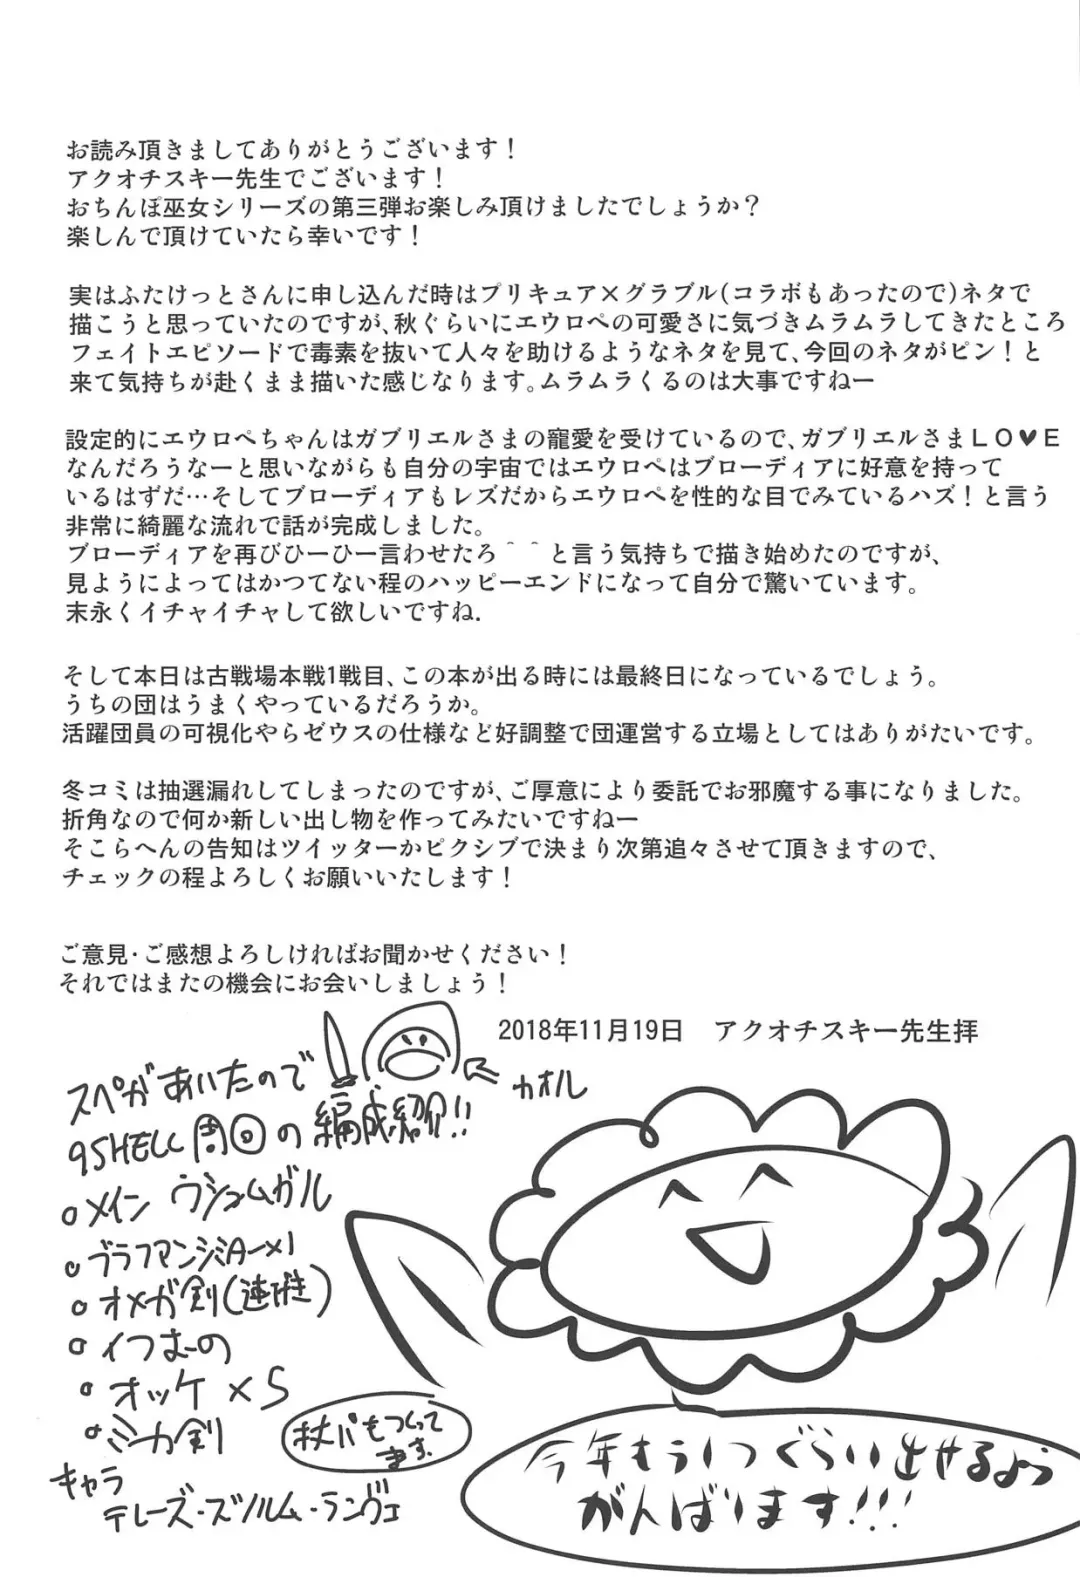 お読み頂きましてありがとうございます！
アクオチスキー先生でございます！
おちんぽ巫女シリーズの第三弾お楽しみ頂けましたでしょうか？
楽しんで頂けていたら幸いです！
実はふたけっとさんに申し込んだ時はプリキュア×グラブル(コラボもあったので)ネタで
描こうと思っていたのですが、秋ぐらいにエウロペの可愛さに気づきムラムラしてきたところ
フェイトエピソードで毒素を抜いて人々を助けるようなネタを見て、今回のネタがピン！と
来て気持ちが赴くまま描いた感じなります。ムラムラくるのは大事ですねー
設定的にエウロペちゃんはガブリエルさまの寵愛を受けているので、ガブリエルさまＬＯ♥Ｅ
なんだろうなーと思いながらも自分の宇宙ではエウロペはブローディアに好意を持って
いるはずだ…そしてブローディアもレズだからエウロペを性的な目でみているハズ！と言う
非常に綺麗な流れで話が完成しました。
ブローディアを再びひーひー言わせたろ＾＾と言う気持ちで描き始めたのですが、
見ようによってはかつてない程のハッピーエンドになって自分で驚いています。
末永くイチャイチャして欲しいですね.
そして本日は古戦場本戦1戦目、この本が出る時には最終日になっているでしょう。
うちの団はうまくやっているだろうか。
活躍団員の可視化やらゼウスの仕様など好調整で団運営する立場としてはありがたいです。
冬コミは抽選漏れしてしまったのですが、ご厚意により委託でお邪魔する事になりました。
折角なので何か新しい出し物を作ってみたいですねー
そこらへんの告知はツイッターかピクシブで決まり次第追々させて頂きますので、
チェックの程よろしくお願いいたします！
ご意見・ご感想よろしければお聞かせください！
それではまたの機会にお会いしましょう！
2018年11月19日　アクオチスキー先生拝
スペがあいたので
カオル
95HELL周回の編成紹介!!
・メイン ウシュムガル
・オメガ剣(連撃)
・いつもの
・オッケ×5
・ミカ剣
杖パもつくって
ます
キャラ
テレーズ・ズルム・ランヴェ
今年もう1つぐらい出せるよう
がんばります!!!